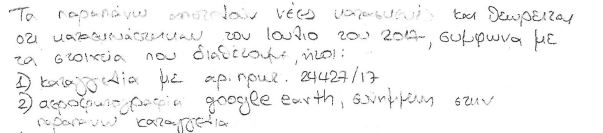 Τα παραπάνω αποτελούν νέες κατασκευές και θεωρείται
ότι κατασκευάστηκαν τον Ιούλιο του 2017, σύμφωνα με
τα στοιχεία που διαθέτουμε, ήτοι:
1) καταγγελία με αρ. πρωτ. 24427/17
2) αεροφωτογραφία google earth, συνημμένη στην
παραπάνω καταγγελία